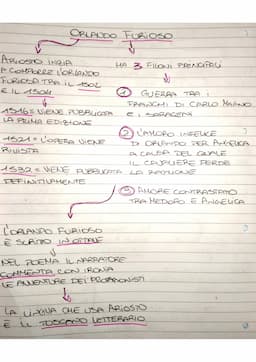 ORLANDO FURIOSO
ARIOSTO INIZIA
A COMPORRE L'ORLANDO
FURIOSO TRA IL 1502
E IL 1504
1516 = VIENE PUBBLICATA
LA PRIMA EDIZIONE
1521 = L'OPERA VIENE
RIVISTA
1532 = VIENE PUBBLICATA
DEFINITIVAMENTE
HA 3 FILONI PRINCIPALI
1 GUERRA TRA I
FRANCHI DI CARLO MAGNO
E I SARACENI
2 L'AMORE INFELICE
DI ORLANDO PER ANGELICA
A CAUSA DEL QUALE
IL CAVALIERE PERDE
LA RAGIONE
3 AMORE CONTRASTATO
TRA MEDORO E ANGELICA
L'ORLANDO FURIOSO
È SCRITTO IN OTTAVE
NEL POEMA IL NARRATORE
COMMENTA CON IRONIA
LE AVVENTURE DEI PROTAGONISTI
LA LINGUA CHE USA ARIOSTO
È IL TOSCANO LETTERARIO